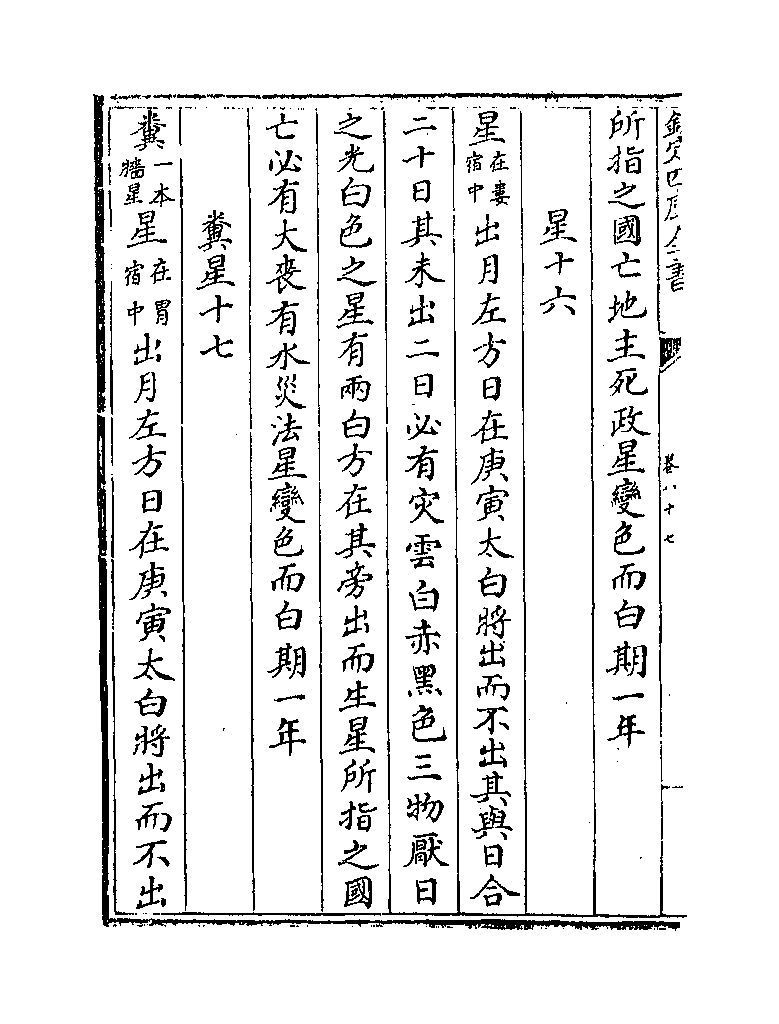 欽定四庫全書
卷八十七
所指之國亡地主死政星變色而白期一年
星十六
星在婁宿中出月左方日在庚寅太白將出而不出其與日合
二十日其未出二日必有灾雲白赤黑色三物厭日
之光白色之星有兩白方在其旁出而生星所指之國
亡必有大喪有水災法星變色而白期一年
糞星十七
糞一本牆星星在胃宿中出月左方日在庚寅太白將出而不出